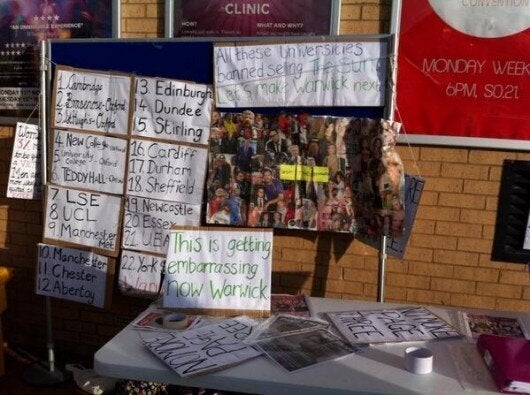 CLINIC
HOW?
WHAT AND WHY?
CONVENTION
MONDAY WEEK
6PM, S0.21
All these Universities
banned selling The Sun
Let's make Warwick next
1. Cambridge
2. Brasenose-Oxford
3. St Hughs-Oxford
4. New College Oxford
5. University College Oxford
6. TEDDY HALL-Oxford
7. LSE
8 UCL
9. Manchester Met
10. Manchester
11. Chester
12. Abertay
13 Edinburgh
14 Dundee
15 Stirling
16 Cardiff
17. Durham
18. Sheffield
19. Newcastle
20 Essex
21 UEA
22. York
This is getting
embarrassing
now Warwick
NO MORE
PAGE
THREE
NO MORE
PAGE
THREE